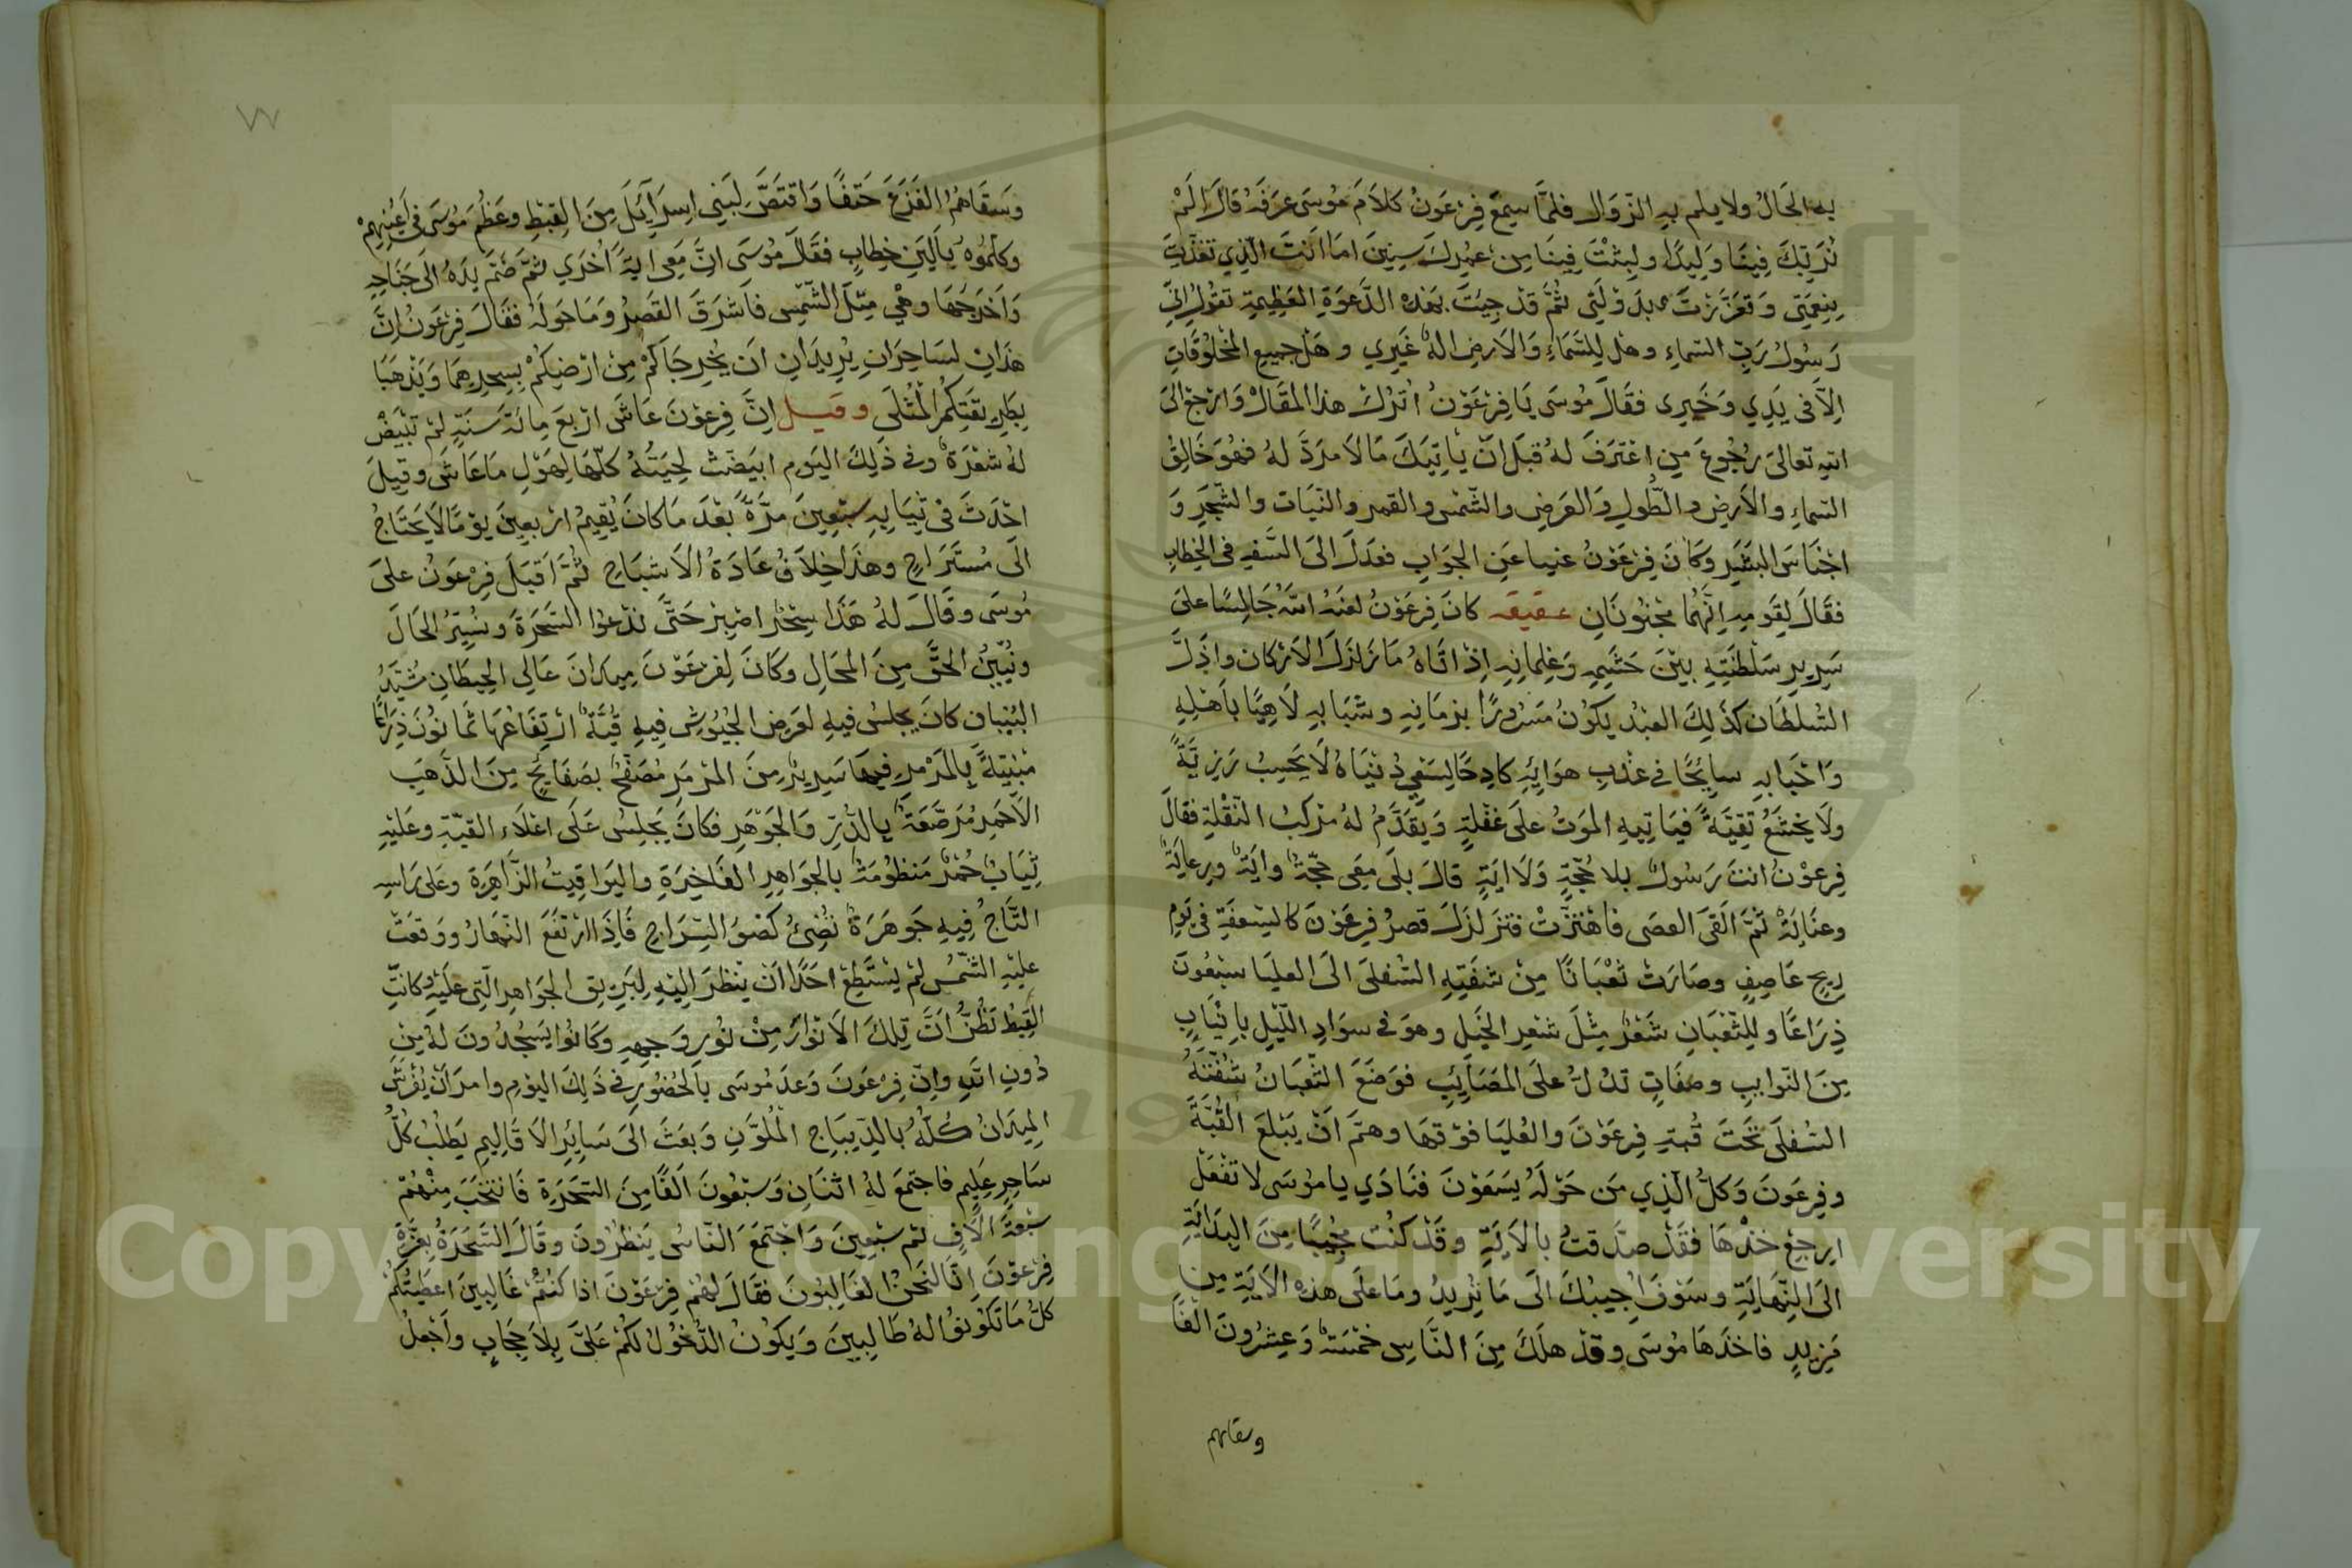 به الحَالُ ولا يلم بهِ الزّوَال فلمَّا سِمعَ فِرْعَوْنُ كلاَمَ مُوسَى عَرَفَهُ قَالَ الَمْ
نُرَبِّكَ فِينَا وَلِيدًا ولبثْتَ فِينَا مِن عُمرِكَ سِنِينَ امَا انَتَ الّذِي تغذّيتَ
بنِعمَتِى وَتعَزّزتَ بدَوْلَتِى ثُمَّ قدْ جِيتَ بهَذه الدَّعوَةِ العَظِيمَةِ تقُولُ انِّى
رَسُولُ رَبّ السّماءِ وهل لِلسَّمَاءِ وَالاَرضِ الهٌ غَيرِي وهَل جميعِ المخلوُقَاتِ
اِلاَّ فى يَدِي وَخَيرى فقَالَ مُوسَى يَا فِرْعَوْنُ اُترُكْ هذا المقَالْ وَارْجعْ الىَ
اللهِ تعَالىَ رُجُوعَ مَنِ اعْتَرفَ لهُ قبَلَ انّ يأتِيَكَ مَا لاَ مرَدَّ لهُ فهُوَ خَالِقُ
السّماءِ والاَرضِ والطّولِ وَالعَرضِ والشّمسِ والقمرِ والنّبَات والشّجَرِ وَ
اجْنَاسَ البشَرِ وكَانَ فِرْعَوْنُ غبيا عَنِ الجوَابِ فعَدَلَ الىَ السَّفهِ فى الخِطابِ
فقَالَ لِقَومِهِ اِنَّهُمَا مجْنُونَانِ عقيقه كانَ فِرعَوْنُ لعنَهُ اللهُ جَالِسًا علىَ
سَرِيرِ سَلْطَنَتِهِ بيْنَ حَشَمِهِ وَغِلمانِهِ اِذْ اتَاهُ مَا زَلزَلَ الاَرْكان واذَلّ
السُّلطَان كذَلِكَ العَبْدُ يكوُنُ مَسْرُورًا بزمَانِهِ وشبَابهِ لاَهِيًا باَهْلِهِ
وَاحْبَابهِ سابحًا في عَذْبِ هوَائِهِ كادِحًا لِسَعْي دُنيَاهُ لاَ يحَسِبُ رَزيَّةً
ولاَ يخشَعُ تقِيَّةً فيَاتِيهِ الموَتُ علىَ غفْلةٍ وَيقَدَّمُ لهُ مرْكبُ النّقْلةِ فقالَ
فِرعْوْنُ انتَ رَسُولٌ بلا حُجّةٍ وَلاَ ايَةٍ قالَ بلَى مَعِى حجّةٌ وايَةٌ ورعَايَةٌ
وعنَايَةٌ ثمَّ القَىَ العصَى فاهْتزّتْ فتزَلزَلَ قصرُ فِرعَوْنَ كالسّعفَةِ فى يَومِ
رِيحٍ عَاصِفٍ وصَارَتْ ثعْبَانًا مِنْ شفَتِهِ السُّفلىَ الىَ العليَا سبْعُونَ
ذِرَاعًا وللثّعْبَانِ شعْرٌ مِثْلَ شعرِ الخيَلِ وهوَ فى سوَادِ اللّيْلِ بانْيَابٍ
مِنَ النّوايبِ وصفَاتٍ تدُلُّ علىَ المصَايَبِ فوَضَعَ الثّعبَانُ شفتَهُ
السُفلَى تحَتَ قُبةِ فِرعَوْنَ والعُليَا فوْقهَا وهمَّ انْ يَبْلعَ القُبَّةَ
وفِرعَونَ وَكلُّ الّذِي مَن حَوْلَهُ يسَمَعوْنَ فنَادَي يا مُوسَى لا تفْعَلْ
ارجعْ خذْهَا فقَدْ صدَّقتُ بالاَيَةِ وقَدْ كنْتُ مجُيبًا مِنَ البِدَايَةِ
الىَ النّهَايَةِ وسَوْفَ اُجِيبُكَ الَى مَا تُرِيدُ ومَا علَى هذه الاَيَةِ مِن
مَزِيدٍ فاخذَهَا مُوسَى وقدْ هلَكَ مِنَ النّاسِ خمْسَةٌ وَعِشرُونَ الفًا
وسقاهم
وَسَقَاهمُ الفَزَعَ حَتفًا وَاقتصَّ لِبَنِي اِسرَآئَلَ مِنَ القِبْطِ وعَظُمَ مُوسَى فى اَعْيُنِهِمْ
وكلّمُوهُ بالَيَنِ خِطابٍ فقَالَ مُوسَى انَّ مَعِى ايَةً اُخْرَي ثمَّ ضَمَّ يدَهُ الَى جَنَاحِهِ
وَاخَرجَهَا وهْي مِثلَ الشّمْسِ فاَشرَقَ القصرُ وَمَا حَولَهُ فقَالَ فِرعَونُ اِنَّ
هذَانِ لسَاحِرَانِ يُرِيدَانِ انَ يُخرِجَاكُمْ مِنْ ارْضِكُمْ بِسِحرِهِمَا وَيَذهَبَا
بِطَرِيقَتِكُمُ المُثْلَى وقيل اِنَّ فِرعوْنَ عَاشَ ارْبعَ مِائة سَنَةٍ لمْ تبْيَضْ
لهُ شعْرَةٌ وفى ذَلِكَ اليَوم ابيَضّتْ لِحيَتُهُ كلّهَا لِهَوْلِ مَا عَاشَ وقِيلَ
احْدَثَ فى ثيَابِهِ سبْعِينَ مرَّةً بعْدَ مَا كانَ يُقِيمُ ارْبعِينَ يوْمًا لاَ يحَتَاجُ
الَى مُستَرَاحٍ وهذَا خِلاَفُ عَادَةُ الاَشبَاحِ ثُمَّ اقبَلَ فِرْعَوْنُ علىَ
مُوسَى وقَالَ لهُ هَذَا سِحْرٌ اصْبِرْ حَتَّى ندْعوُا السَّحَرَةَ ونُسِيّرُ الحَالَ
ونُبيِّنُ الحَقَّ مِنَ المحَالِ وكَانَ لِفرْعَوْنَ مِيدَانَ عَالِى الحِيطَانِ مُشَيّدُ
البُنيان كانَ يجلسُ فيهِ لعَرضِ الجُيُوشِ فِيهِ قُبّةٌ ارْتِفَاعُهَا ثمَانُونَ ذِرَاعًا
مَبْنِيّةً بِالمَرْمرِ فيهَا سَرِيرٌ مِنَ المرْمَرِ مُصَفّحٌ بصَفَايَحٍ مِنَ الذّهَبِ
الاَحْمَرِ مُرَصَّعَةٌ بالدُّرِّ وَالجوْهَرِ فكانَ يَجلِسُ عَلَى اعْلاَءِ القبّةِ وعَليْهِ
ثِيَابٌ حُمْرٌ مَنظُومَةٌ بالجوَاهِرِ الفَاخِرَةِ واليَوَاقِيتُ الزّاهِرَةِ وعَلى رَاسِهِ
التّاجُ فِيهِ جَوهَرَةٌ تُضِئُ كضَوْ السِّرَاجِ فَاِذَا ارْتفَعَ النّهَارُ ووَقعَتْ
عليْهِ الشّمْسُ لمْ يسْتَطِعْ احَدًا انْ ينْظرَ اليْهِ لِبَرِيقِ الجوَاهِرِ الّتِى عَليَهْ وَكانَتْ
القِبْطُ تظُنُّ انَّ تِلكَ الاَنْوَارَ مِنْ نُورِ وَجهِهِ وَكَانُوا يسَجُدُونَ لهُ مِنْ
دُونِ اللهِ وانّ فِرْعَونَ وَعدَ مُوسَى بالحُضوُرِ فى ذَلِكَ اليوْمِ وامرَ انْ يُفرَشَ
المِيدَانُ كُلّهُ بالدّيبَاجِ المُلوَّنِ وَبعَثَ الىَ سَايِرِ الاَقَالِيمِ يَطلبُ كُلُّ
سَاحِرٍ عَلِيمٍ فاجتمعَ لهُ اثنَانِ وَسبْعُونَ الفًا مِنَ السّحَرَةِ فَانتخَبَ مِنْهُمْ
سبْعَةَ الاَفٍ ثمَّ سبْعِينَ وَاجْتمَعَ النّاسُ يَنظرُونَ وقَالَ السّحَرَةُ بعِزّةِ
فِرْعوْنَ اِنّا لنَحْنُ الغَالِبُونَ فقَالَ لهُمْ فِرعَوْنَ اذا كنْتُمْ غَالِبِينَ اعطَيتُكُمْ
كلَّ مَا تكونوُا لهُ طَالِبِينَ وَيكوُنُ الدُّخُولُ لكُمْ عَلىَّ بِلاَ حِجَابٍ واجْعلُ
٧٧